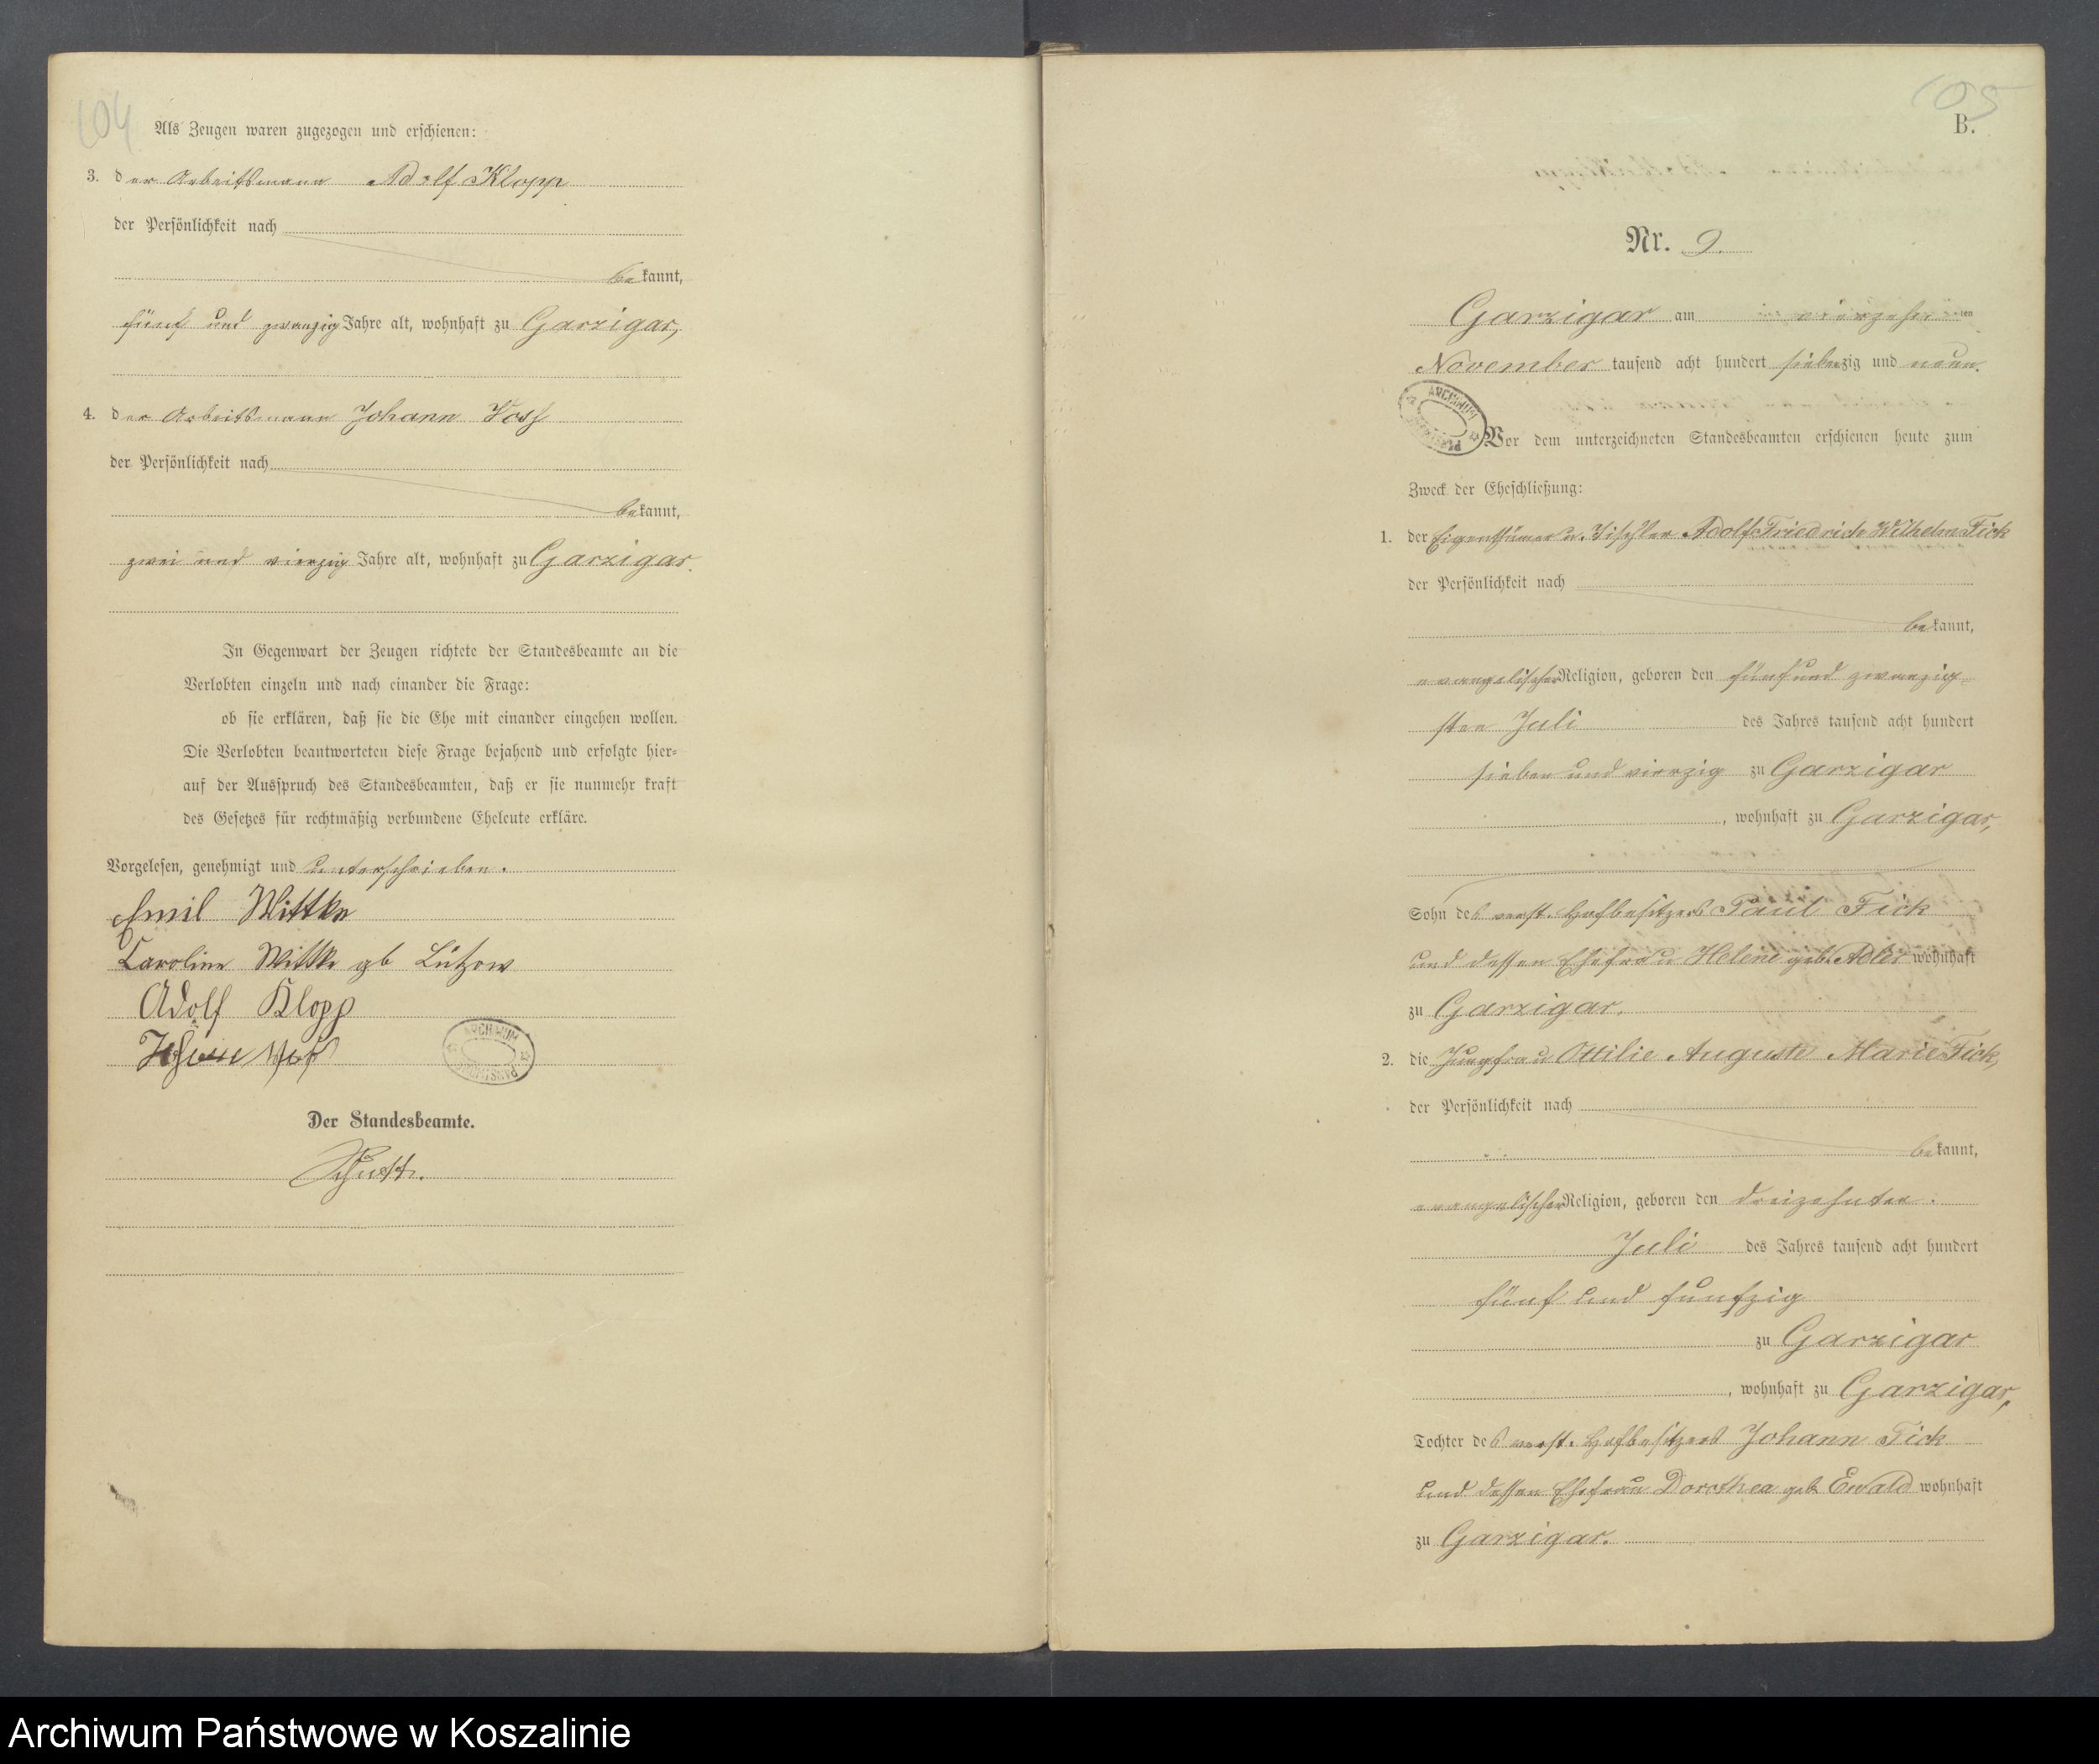 104
Als Zeugen waren zugezogen und erschienen:
3. der Arbeitsmann Adolf Klopp
der Persönlichkeit nach
bekannt,
fünf und zwanzig Jahre alt, wohnhaft zu Garzigar,
4. der Arbeitsmann Johann Voss
der Persönlichkeit nach
bekannt,
zwei und vierzig Jahre alt, wohnhaft zu Garzigar.
In Gegenwart der Zeugen richtete der Standesbeamte an die
Verlobten einzeln und nach einander die Frage:
ob sie erklären, daß sie die Ehe mit einander eingehen wollen.
Die Verlobten beantworteten diese Frage bejahend und erfolgte hier-
auf der Ausspruch des Standesbeamten, daß er sie nunmehr kraft
des Gesetzes für rechtmäßig verbundene Eheleute erkläre.
Vorgelesen, genehmigt und unterschrieben.
Emil Wittke
Caroline Wittke gb Lützow
Adolf Klopp
Der Standesbeamte.
105
B.
Nr. 9.
Garzigar am vierzehnten
November tausend acht hundert siebenzig und neun.
ARCHIWUM
Vor dem unterzeichneten Standesbeamten erschienen heute zum
Zweck der Eheschließung:
1. der Eigenthümer u. Tischler Adolf Friedrich Wilhelm Fick
der Persönlichkeit nach
bekannt,
evangelischer Religion, geboren den fünf und zwanzig-
sten Juli des Jahres tausend acht hundert
sieben und vierzig zu Garzigar
, wohnhaft zu Garzigar,
Sohn des verst. Hofbesitzers Paul Fick
und dessen Ehefrau Helene geb. Adler wohnhaft
zu Garzigar.
2. die Jungfrau Ottilie Auguste Marie Fick,
der Persönlichkeit nach
bekannt,
evangelischer Religion, geboren den dreizehnten
Juli des Jahres tausend acht hundert
fünf und funfzig
zu Garzigar
, wohnhaft zu Garzigar,
Tochter des verst. Hofbesitzers Johann Fick
und dessen Ehefrau Dorothea geb. Ewald wohnhaft
zu Garzigar.
Archiwum Państwowe w Koszalinie